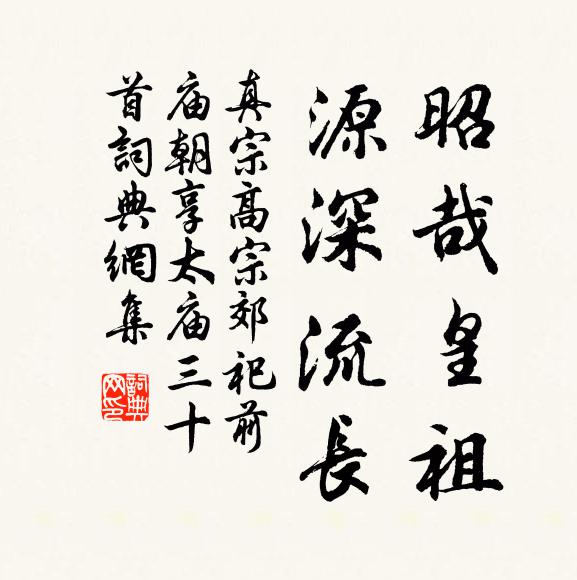 昭哉皇祖
源深流長
真宗高宗郊祀前
庙朝享太庙三十
首詞典網集
詞典网印